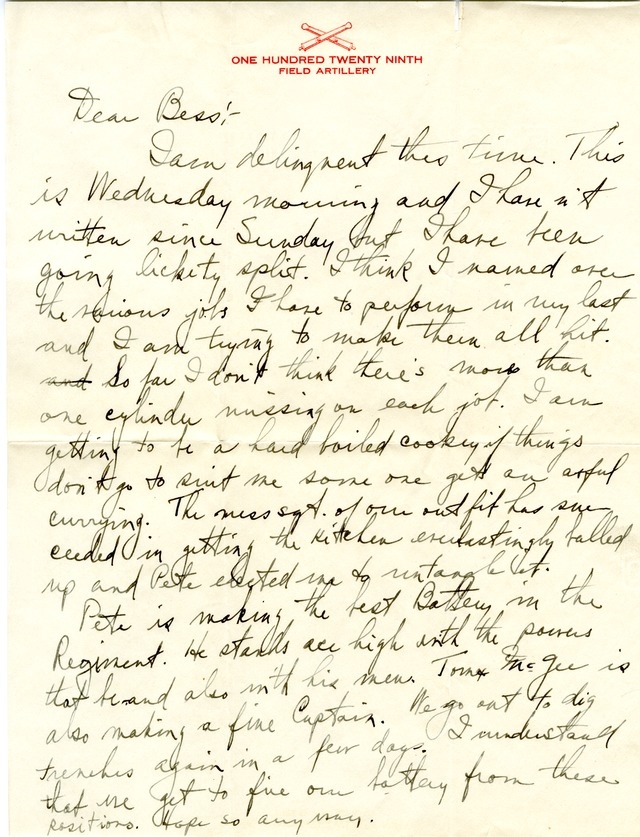 ONE HUNDRED TWENTY NINTH
FIELD ARTILLERY
Dear Bess:-
I am delinquent this time. This
is Wednesday morning and I haven't
written since Sunday but I have been
going lickety split. I think I named over
the various jobs I have to perform in my last
and I am trying to make them all hit.
and So far I don't think there's more than
one cylinder missing on each job. I am
getting to be a hard boiled cookey if things
don't go to suit me some one gets an awful
currying. The mess sgt. of our outfit has suc
ceeded in getting the kitchen everlastingly balled
up and Pete elected me to untangle it.
Pete is making the best Battery in the
Regiment. He stands ace high with the powers
that be and also with his men. Tom McGee is
also making a fine Captain. We go out to dig
trenches again in a few days. I understand
that we get to fire our battery from these
positions. Hope so anyway.